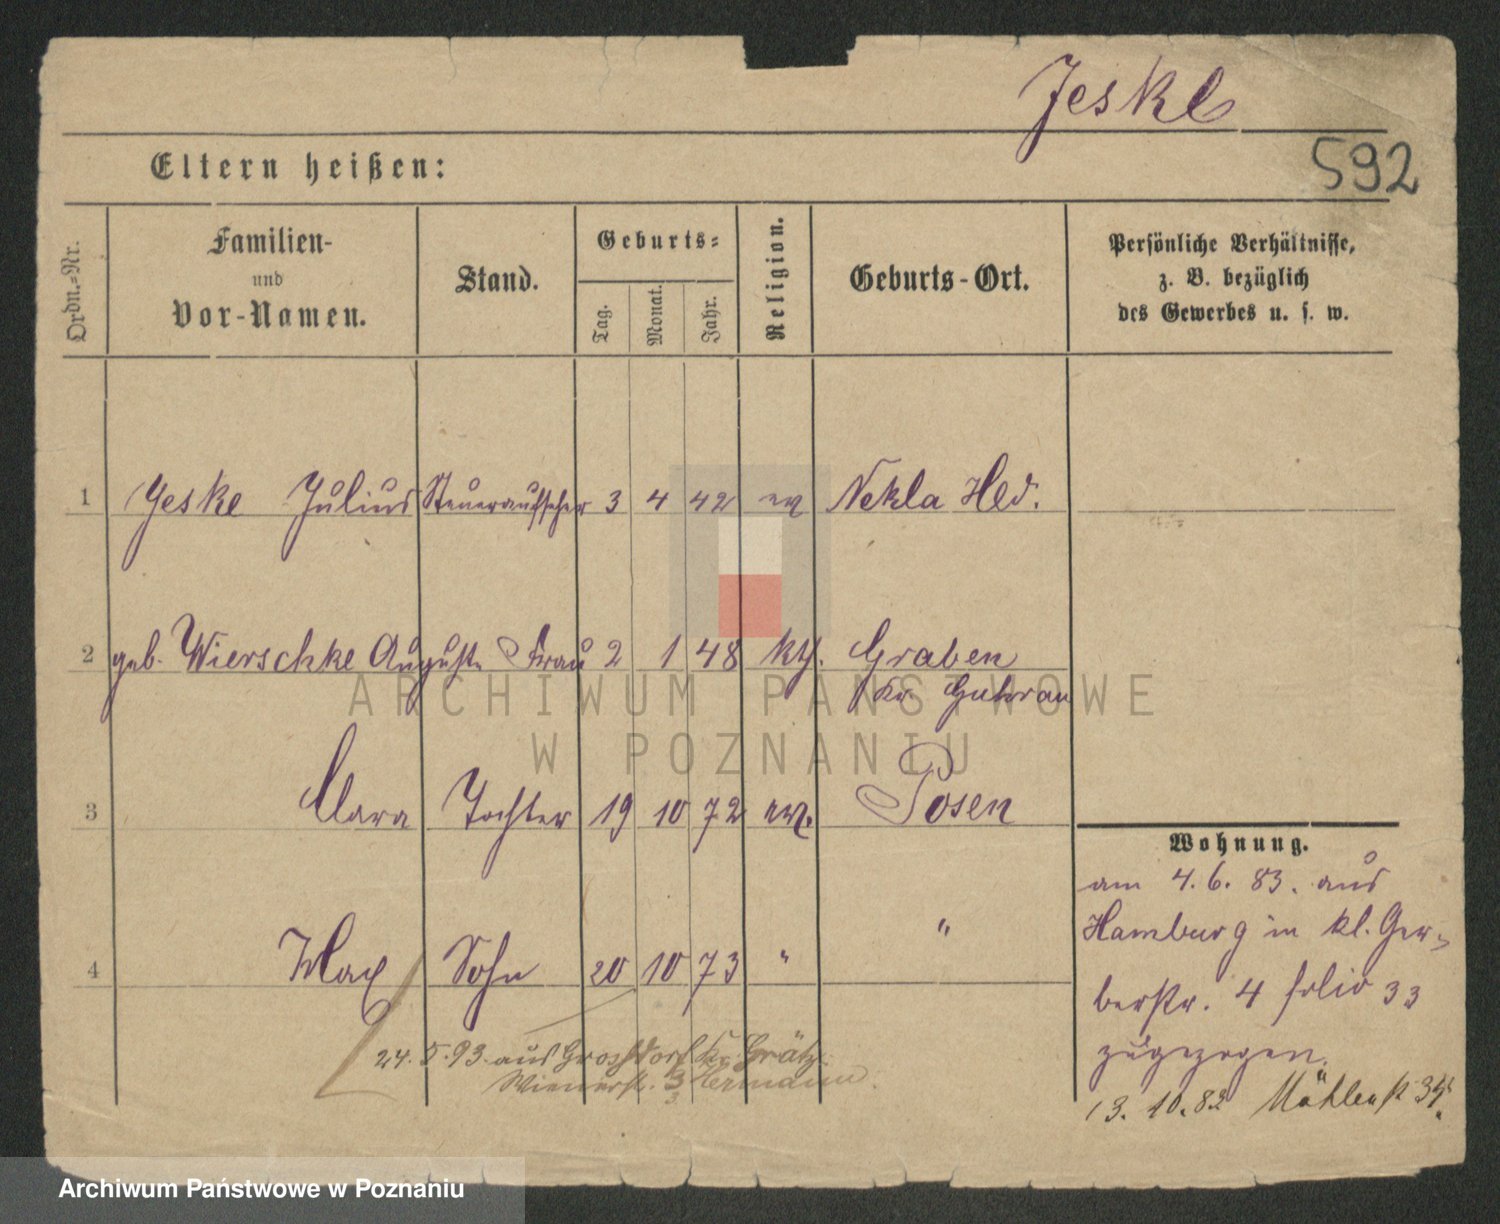 Jeske
592
Eltern heißen:
Ordn.-Nr.
Familien-
und
Vor-Namen.
Stand.
Geburts-
Tag.
Monat.
Jahr.
Religion.
Geburts-Ort.
Persönliche Verhältnisse,
z. B. bezüglich
des Gewerbes u. s. w.
1 Jeske Julius Steueraufseher 3 4 42 ev Nekla Hld.
2 geb. Wierschke Auguste Frau 2 1 48 kth. Graben
Kr. Guhrau
3 Clara Tochter 19 10 72 ev. Posen
4 Max Sohn 20 10 73 " "
24. 5. 93. aus Grossdorf Kr. Grätz
Wienerst. 3 Hermann.
Wohnung.
am 4. 6. 83. aus
Hamburg in kl. Ger-
berstr. 4 folio 33
zugezogen.
13. 10. 82 Mühlenst
ARCHIWUM PAŃSTWOWE
W POZNANIU
Archiwum Państwowe w Poznaniu